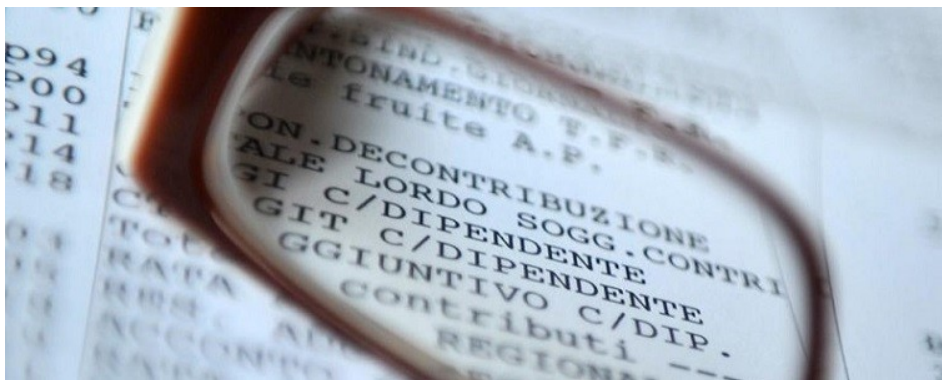 p94
P00
P11
P14
P18
F
NTONAMENTO T.F.R.
ie fruite A.P.
ON.DECONTRIBUZIONE
ALE LORDO SOGG.CONTRI
GI C/DIPENDENTE
GIT C/DIPENDENTE
GGIUNTIVO C/DIP.
contributi ---
REGIONA
Tot
RATA
ACCONTO